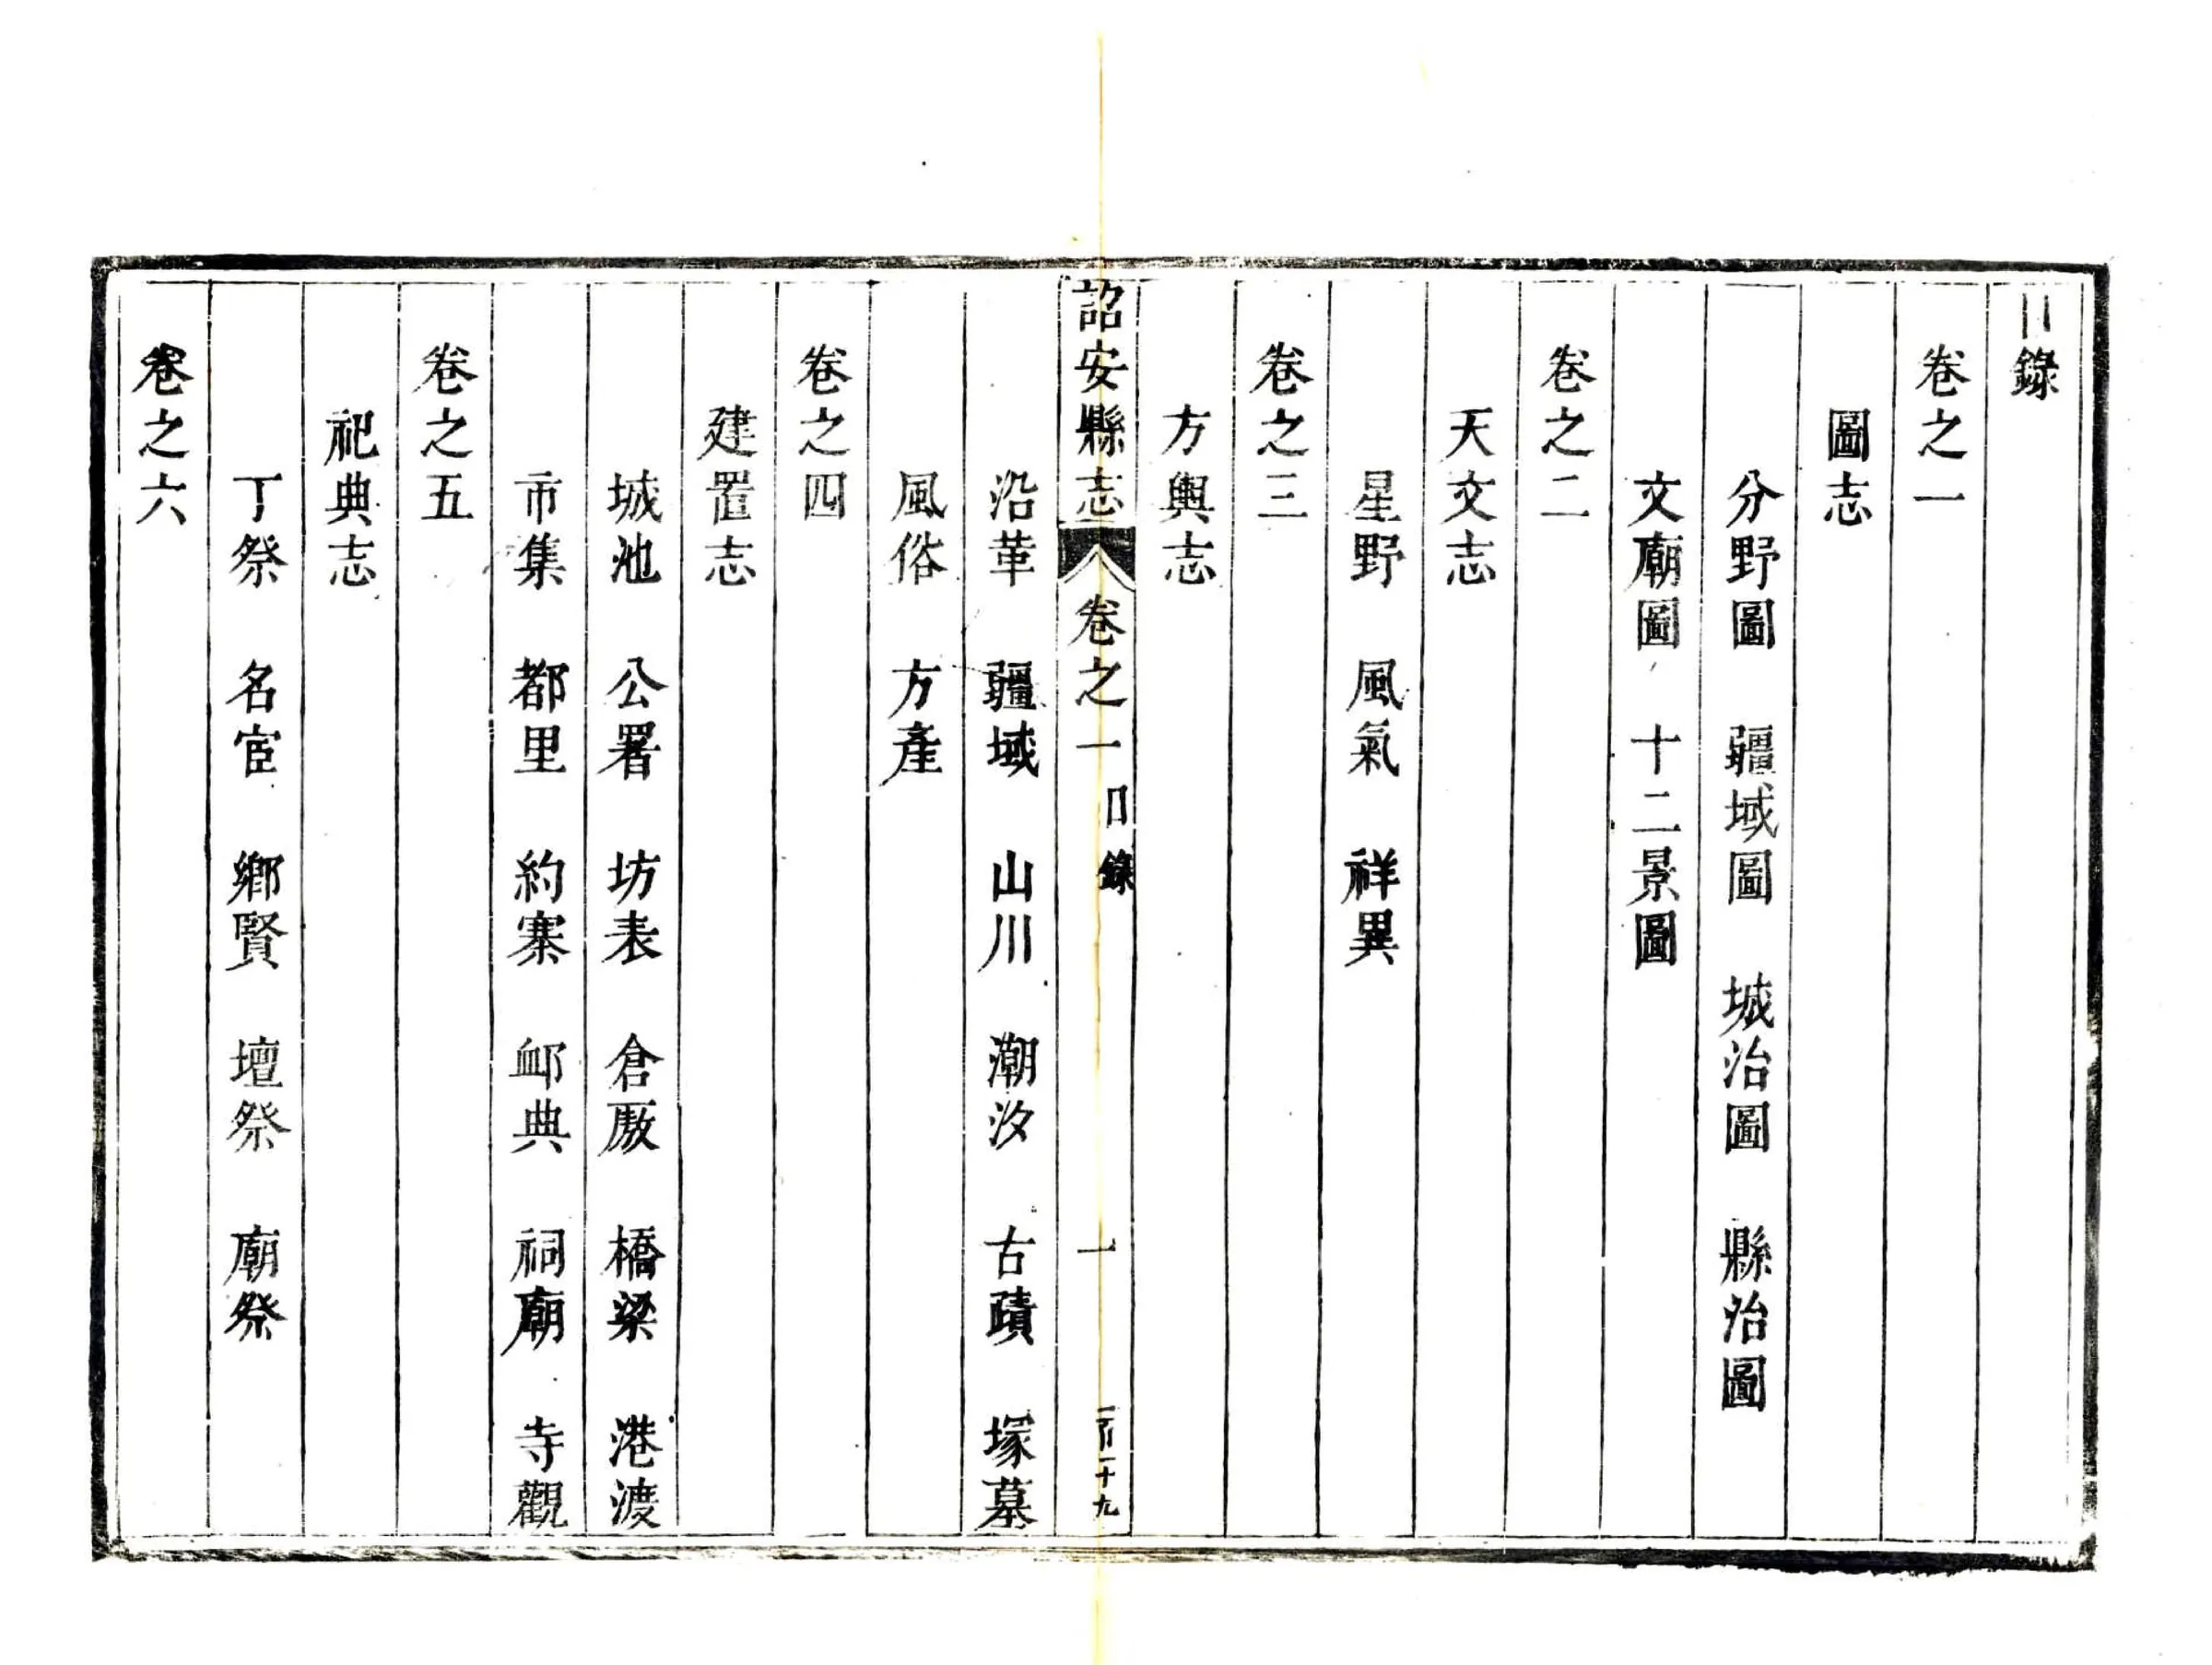 目錄
卷之一
圖志
分野圖 疆域圖 城治圖 縣治圖
文廟圖 十二景圖
卷之二
天文志
星野 風氣 祥異
卷之三
方輿志
詔安縣志 卷之一 目錄 一 一百十九
沿革 疆域 山川 潮汐 古蹟 塚墓
風俗 方產
卷之四
建置志
城池 公署 坊表 倉厫 橋梁 港渡
市集 都里 約寨 卹典 祠廟 寺觀
卷之五
祀典志
丁祭 名宦 鄉賢 壇祭 廟祭
卷之六